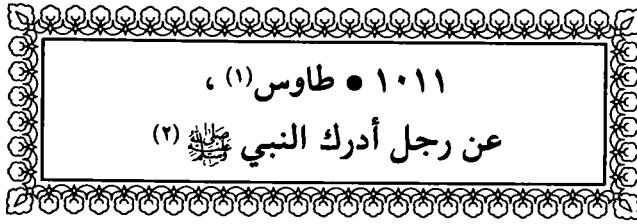 ١٠١١ ● طاوس(١) ،
عن رجل أدرك النبي ﷺ (٢)